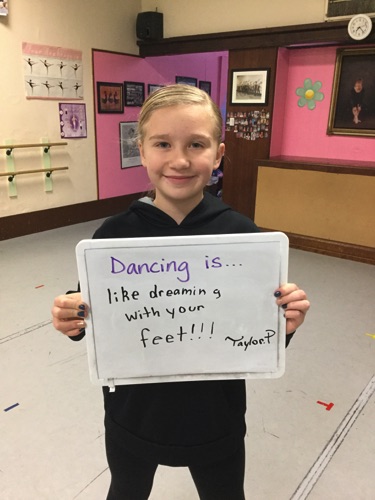 Dancing is...
like dreaming
with your
feet!!!
~Taylor.P